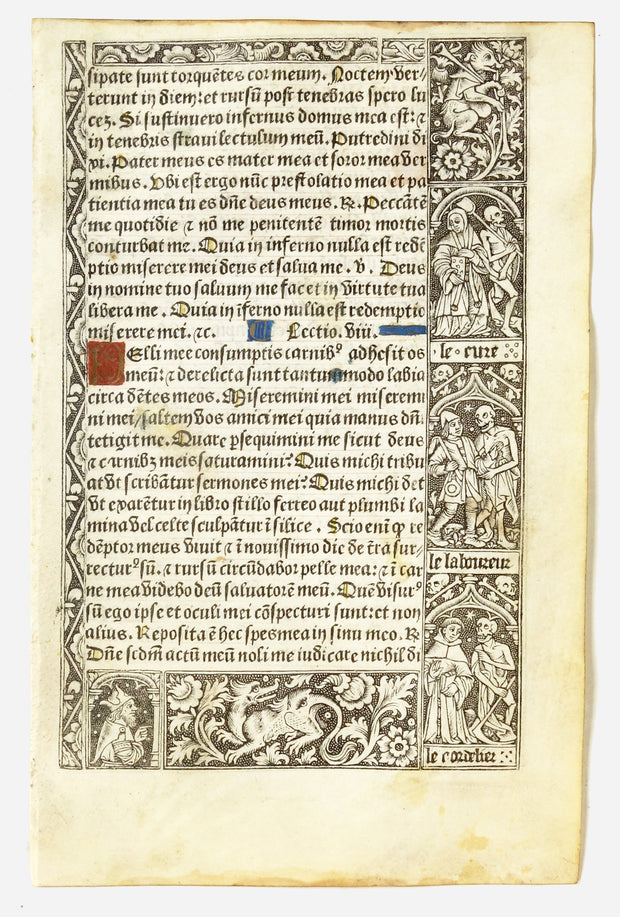 sipate sunt torquētes cor meum. Noctem ver/
terunt in diem: et rursū post tenebras spero lu
cez. Si sustinuero infernus domus mea est: ⁊
in tenebris stravi lectulum meū. Putredini di
xi. Pater meus es mater mea et soror mea ver
mibus. Vbi est ergo nūc prestolatio mea et pa
tientia mea tu es dn̄e deus meus. ℞. Peccātē
me quotidie ⁊ nō me penitentē timor mortis
conturbat me. Quia in inferno nulla est redē
ptio miserere mei deus et salua me. v. Deus
in nomine tuo saluum me fac et in virtute tua
libera me. Quia in īferno nulla est redemptio
miserere mei. ⁊c. Lectio. viii.
PElli mee consumptis carnibꝰ adhesit os
meū: ⁊ derelicta sunt tantummodo labia
circa dētes meos. Miseremini mei miserem
ni mei/saltem vos amici mei quia manus dn̄i
tetigit me. Quare ꝑsequimini me sicut deus
⁊ carnibꝫ meis saturamini? Quis michi tribu
at vt scribātur sermones mei? Quis michi det
vt exarētur in libro stillo ferreo aut plumbi la
mina vel celte sculpātur ī silice. Scio enī ꝙ re
dēptor meus viuit ⁊ ī nouissimo die de t̄ra sur/
recturꝰ sū. ⁊ rursū circūdabor pelle mea: ⁊ ī car
ne mea videbo deū saluatorē meū. Quē visurꝰ
sū ego ipse et oculi mei cōspecturi sunt: et non
alius. Reposita ē hec spes mea in sinu meo. ℞
Dn̄e scdm̄ actū meū noli me iudicare nichil di
le cure
le laboureur
le cordelier